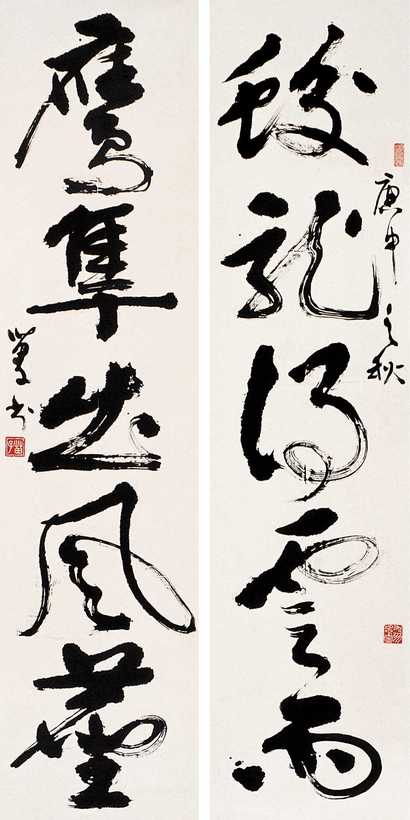 蛟龍得雲雨
庚申之秋
鷹隼出風塵
書